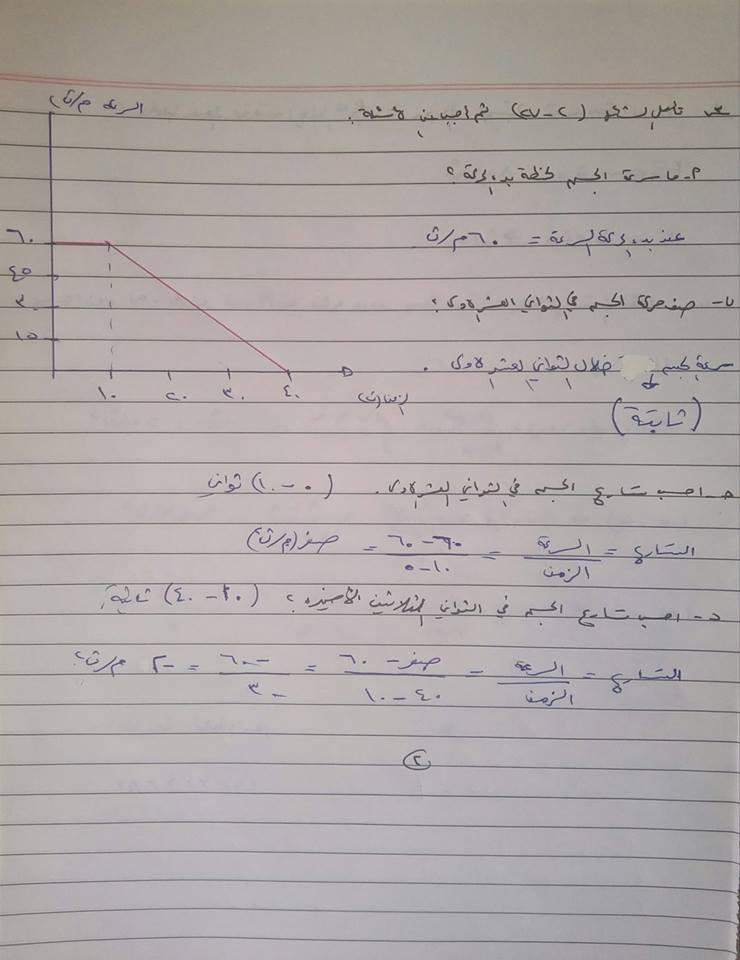 تأمل الشكل (٢-٤٧) ثم أجب عن الأسئلة.
السرعة م/ث
أ- ما سرعة الجسم لحظة بدء الحركة ؟
عند بدء الحركة السرعة = ٦٠ م/ث
٦٠
٤٥
٣٠
١٥
ب- صف حركة الجسم في الثواني العشر الأولى ؟
سرعة الجسم خلال الثواني العشر الأولى .
١٠ ٢٠ ٣٠ ٤٠
الزمن (ث)
(ثابتة)
جـ- احسب تسارع الجسم في الثواني العشر الأولى. (٠-١٠) ثواني
التسارع = السرعة / الزمن = ٦٠-٦٠ / ١٠-٠ = صفر (م/ث٢)
د- احسب تسارع الجسم في الثواني الثلاثين الأخيرة ؟ (١٠-٤٠) ثانية
التسارع = السرعة / الزمن = صفر-٦٠ / ٤٠-١٠ = -٦٠ / ٣٠ = -٢ م/ث٢
٢